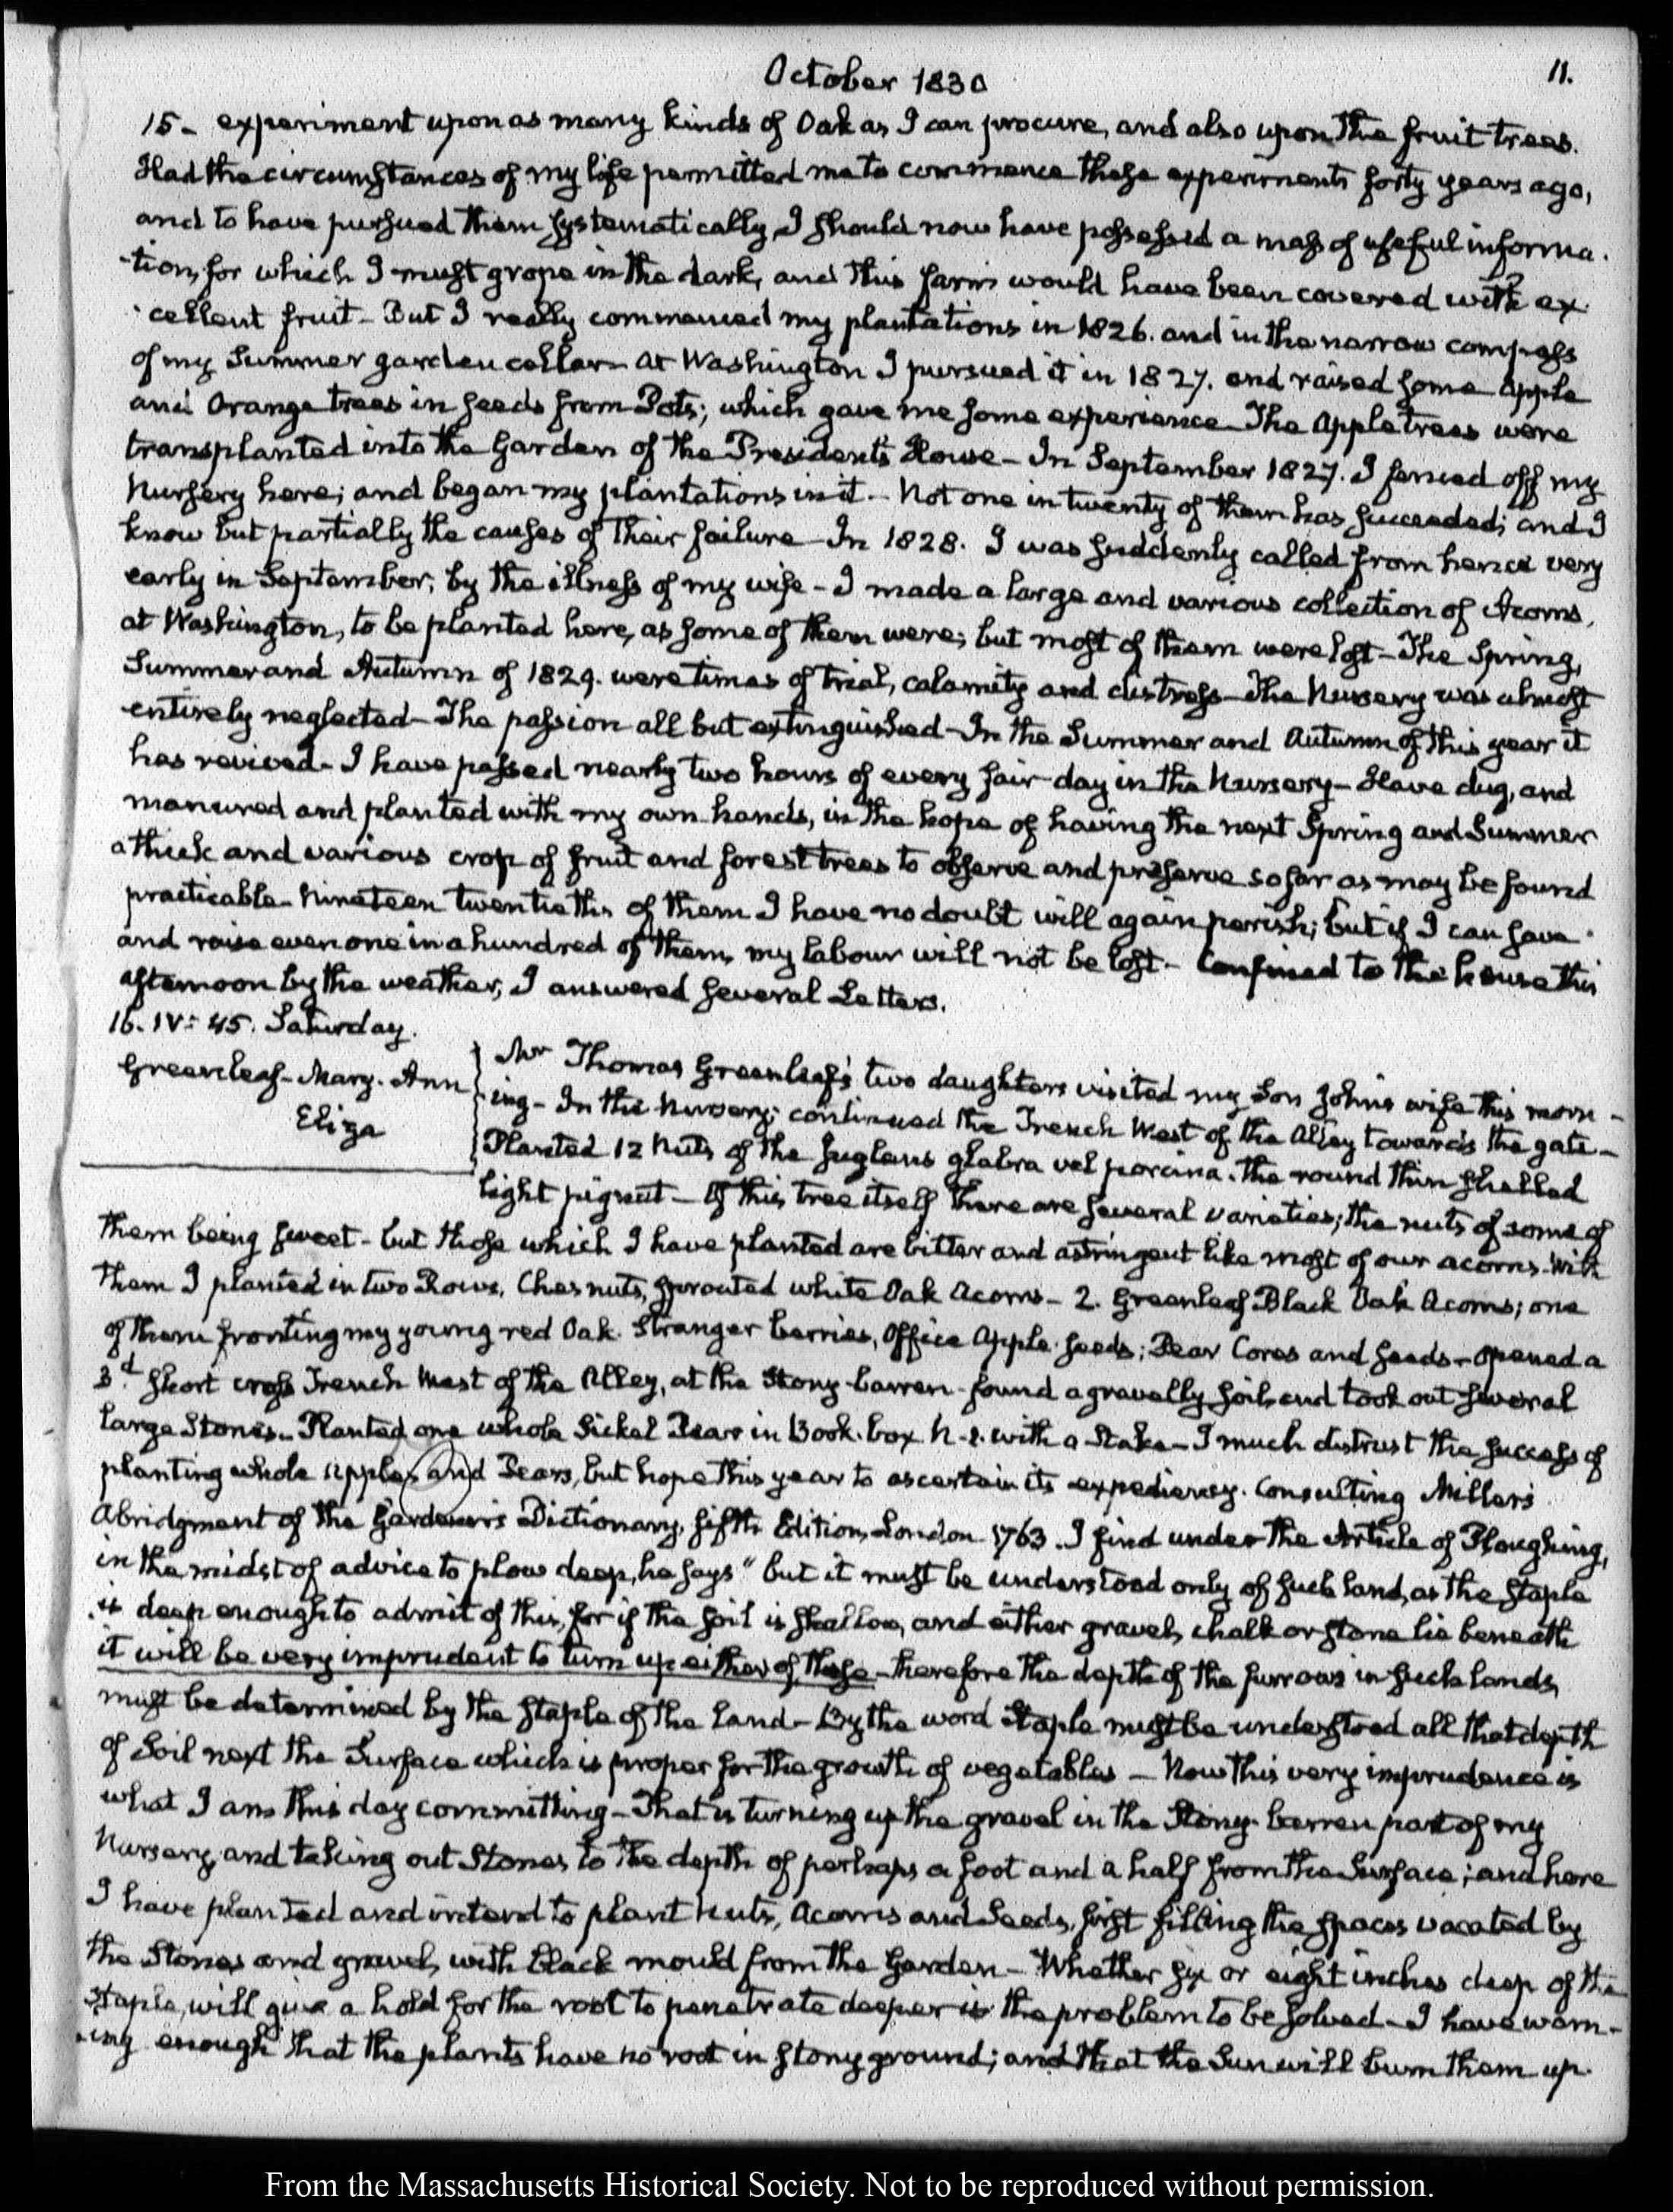 October 1830
11.
15- experiment upon as many kinds of Oak as I can procure, and also upon the fruit trees.
Had the circumstances of my life permitted me to commence these experiments forty years ago,
and to have pursued them systematically, I should now have possessed a mass of useful informa-
-tion, for which I must grope in the dark, and this farm would have been covered with ex-
-cellent fruit- But I really commenced my plantations in 1826. and in the narrow compass
of my Summer garden cellar at Washington I pursued it in 1827. and raised some Apple
and Orange trees in seeds from Pots; which gave me some experience- The Apple trees were
transplanted into the Garden of the President's House- In September 1827. I fenced off my
Nursery here; and began my plantations in it.- Not one in twenty of them has succeeded; and I
know but partially the causes of their failure- In 1828. I was suddenly called from hence very
early in September; by the illness of my wife- I made a large and various collection of Acorns,
at Washington, to be planted here, as some of them were; but most of them were lost- The Spring,
Summer and Autumn of 1829. were times of trial, calamity and distress- The Nursery was almost
entirely neglected- The passion all but extinguished- In the Summer and Autumn of this year it
has revived- I have passed nearly two hours of every fair day in the Nursery- Have dug, and
manured and planted with my own hands, in the hope of having the next Spring and Summer
a thick and various crop of fruit and forest trees to observe and preserve so far as may be found
practicable- Nineteen twentieths of them I have no doubt will again perish; but if I can save
and raise even one in a hundred of them, my labour will not be lost- Confined to the house this
afternoon by the weather, I answered several Letters.
16. IV: 45. Saturday.
Greenleaf- Mary. Ann
Eliza
Mr Thomas Greenleaf's two daughters visited my Son John's wife this morn-
-ing- In the Nursery; continued the Trench West of the Alley towards the gate-
Planted 12 Nuts of the Juglans glabra vel porcina. the round thin shelled
light pignut- Of this tree itself there are several varieties; the nuts of some of
them being sweet- but those which I have planted are bitter and astringent like most of our acorns. With
them I planted in two Rows, Chesnuts, sprouted white Oak Acorns- 2. Greenleaf Black Oak Acorns; one
of them fronting my young red Oak. Stranger berries, Office Apple seeds; Pear Cores and seeds- opened a
3.d short cross Trench West of the Alley, at the Stony-barren- found a gravelly soil, and took out several
large Stones.- Planted one whole Sickel Pear in Book-box N. 2. with a Stake- I much distrust the success of
planting whole apples and Pears, but hope this year to ascertain its expediency. Consulting Millers
Abridgment of the Gardener's Dictionary, fifth Edition, London 1763. I find under the Article of Ploughing,
in the midst of advice to plow deep, he says "but it must be understood only of such land, as the staple
is deep enough to admit of this, for if the soil is shallow, and either gravel, chalk or stone lie beneath
it will be very imprudent to turn up either of these- therefore the depth of the furrows in such lands,
must be determined by the staple of the land- By the word Staple must be understood all that depth
of Soil next the Surface which is proper for the growth of vegetables- Now this very imprudence is
what I am this day committing- That is turning up the gravel in the Stony-barren part of my
Nursery, and taking out Stones to the depth of perhaps a foot and a half from the Surface; and here
I have planted and intend to plant Nuts, Acorns and Seeds, first filling the spaces vacated by
the Stones and gravel, with black mould from the Garden- Whether six or eight inches deep of the
staple, will give a hold for the root to penetrate deeper is the problem to be solved- I have warn-
-ing enough that the plants have no root in stony ground; and that the Sun will burn them up.
From the Massachusetts Historical Society. Not to be reproduced without permission.